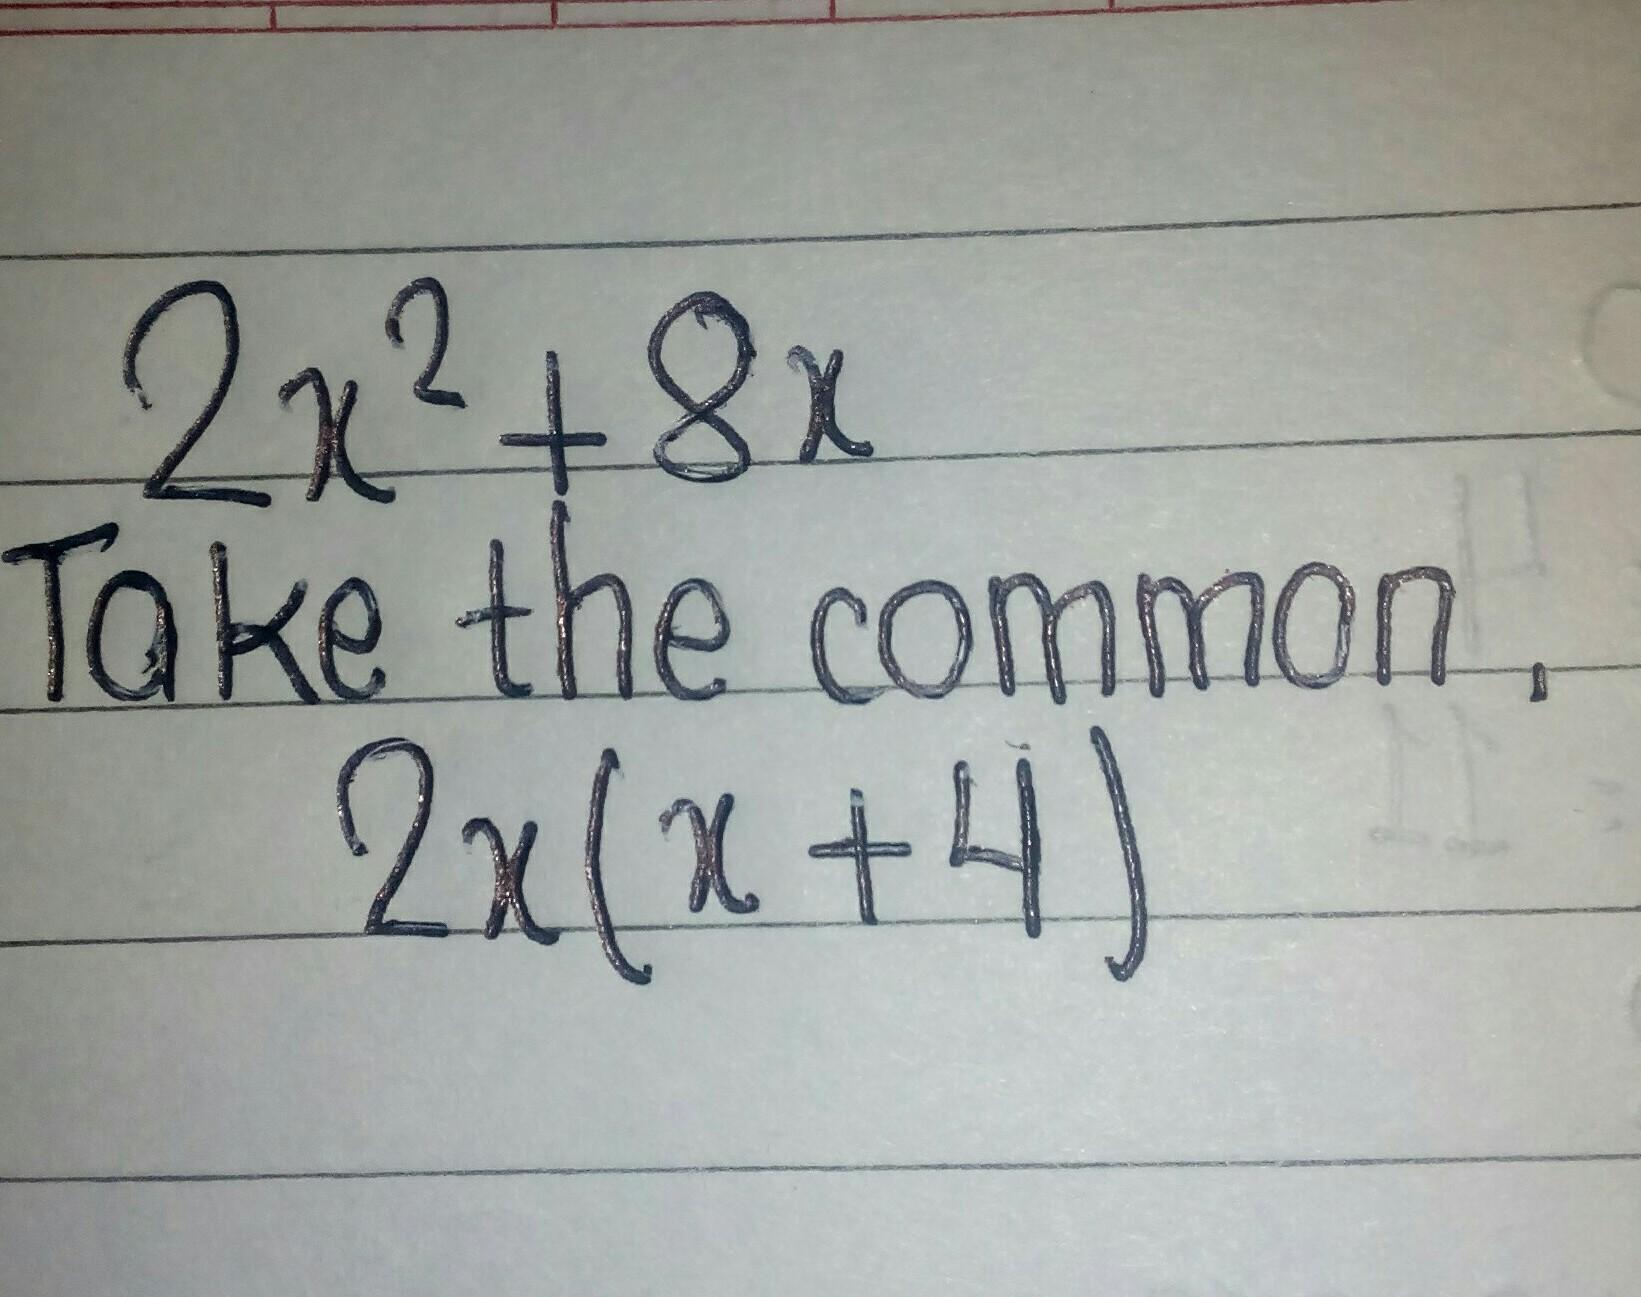 2x² + 8x
Take the common,
2x(x + 4)